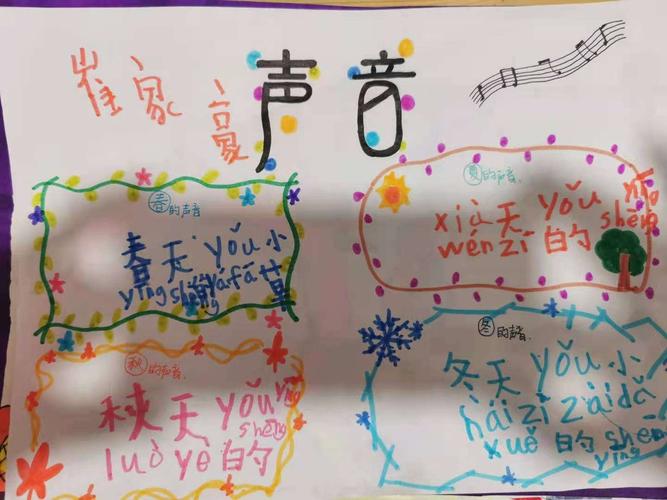 崔家豪
声音
春的声音
春天yǒu小
草
yáfā
yīng shēng
夏的声音
xià天yǒu
wénzǐ的shēng
秋的声音
秋天yǒu
luòyè的shēng
冬的声音
冬天yǒu小
háizǐzàidǎ
xuě的shēng
yīng